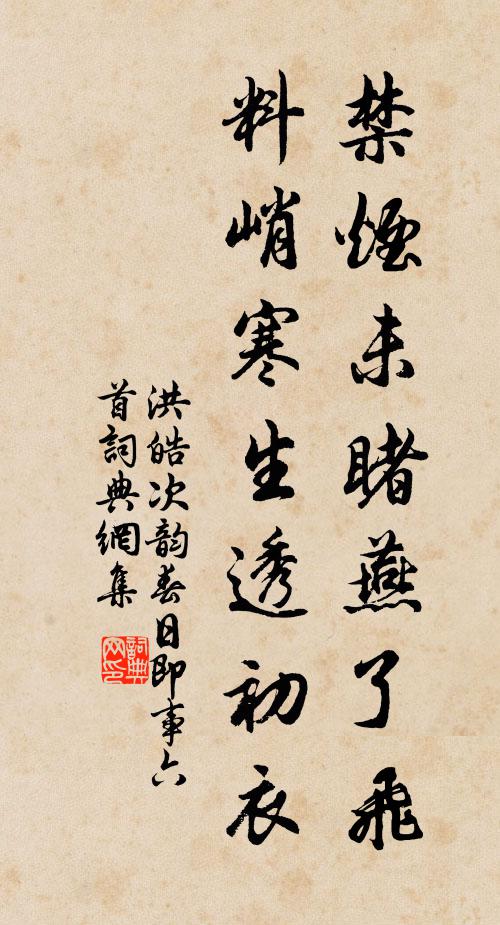 禁煙未睹燕了飛
料峭寒生透初衣
洪皓次韵春日即事六
首詞典網集
詞典
网印